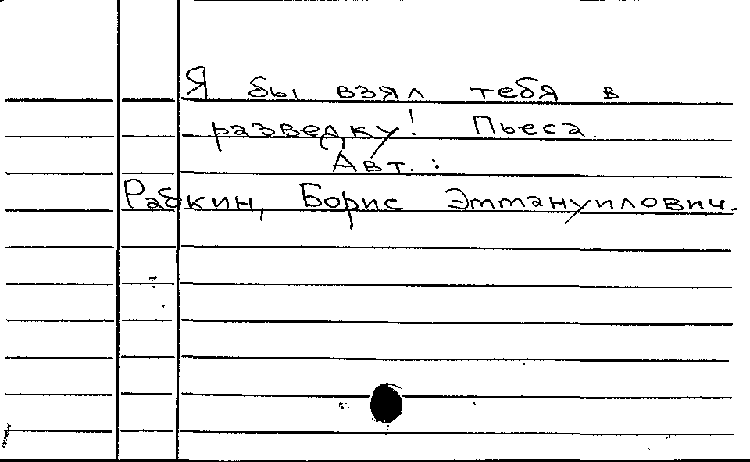 Я бы взял тебя в
разведку! Пьеса
Авт.:
Рабкин, Борис Эммануилович.